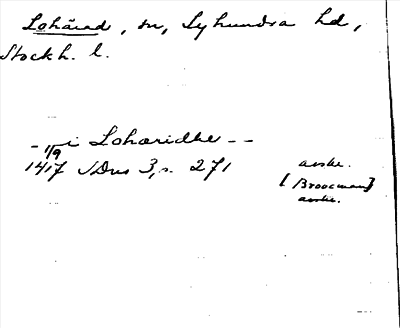 Lohärad, sn, Lyhundra hd,
Stockh. l.
- - i Loharidhe - -
1/9
1417 SDns 3, s. 271
avskr.
[Broocman]
avskr.